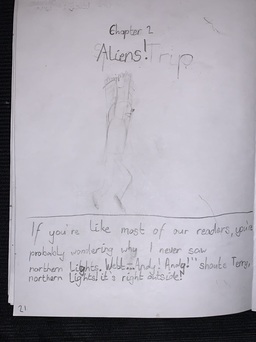 Chapter 2
Aliens! Trip
If you're like most of our readers, you're
probably wondering why I never saw
northern Lights. Well... "Andy! Andy!" shouts Terry.
northern Lights! it's right outside!"
21